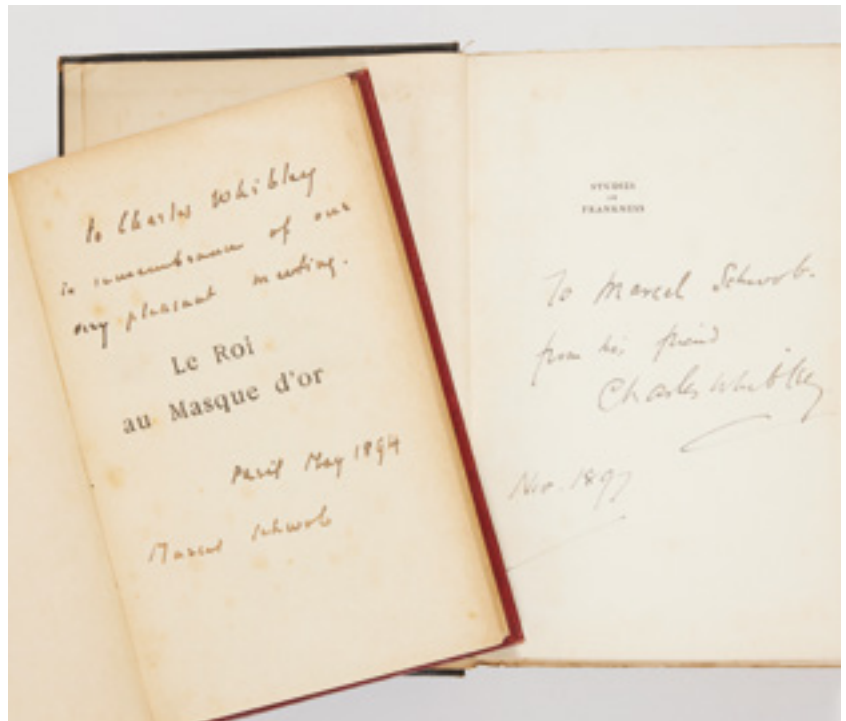 To Charles Whibley
in remembrance of our
very pleasant meeting.
Le Roi
au Masque d'or
Paris May 1894
Marcel Schwob
STUDIES
IN
FRANKNESS
To Marcel Schwob.
from his friend
Charles Whibley
Nov. 1897